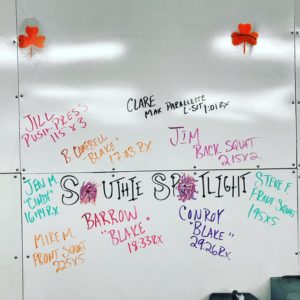 JILL
PUSH-PRESS
115 x 3
CLARE
MAX PARALLETTE
L-SIT 1:01 RX
B. CAMPBELL
"BLAKE"
17:03 RX
JIM
BACK SQUAT
215 x 2
SOUTHIE SPOTLIGHT
JEN M
"CINDY"
16+19 RX
BARROW
"BLAKE"
18:33 RX
CONROY
"BLAKE"
29:26 RX
STEVE F.
FRONT SQUAT
195 x 5
MIKE M.
FRONT SQUAT
225 x 5